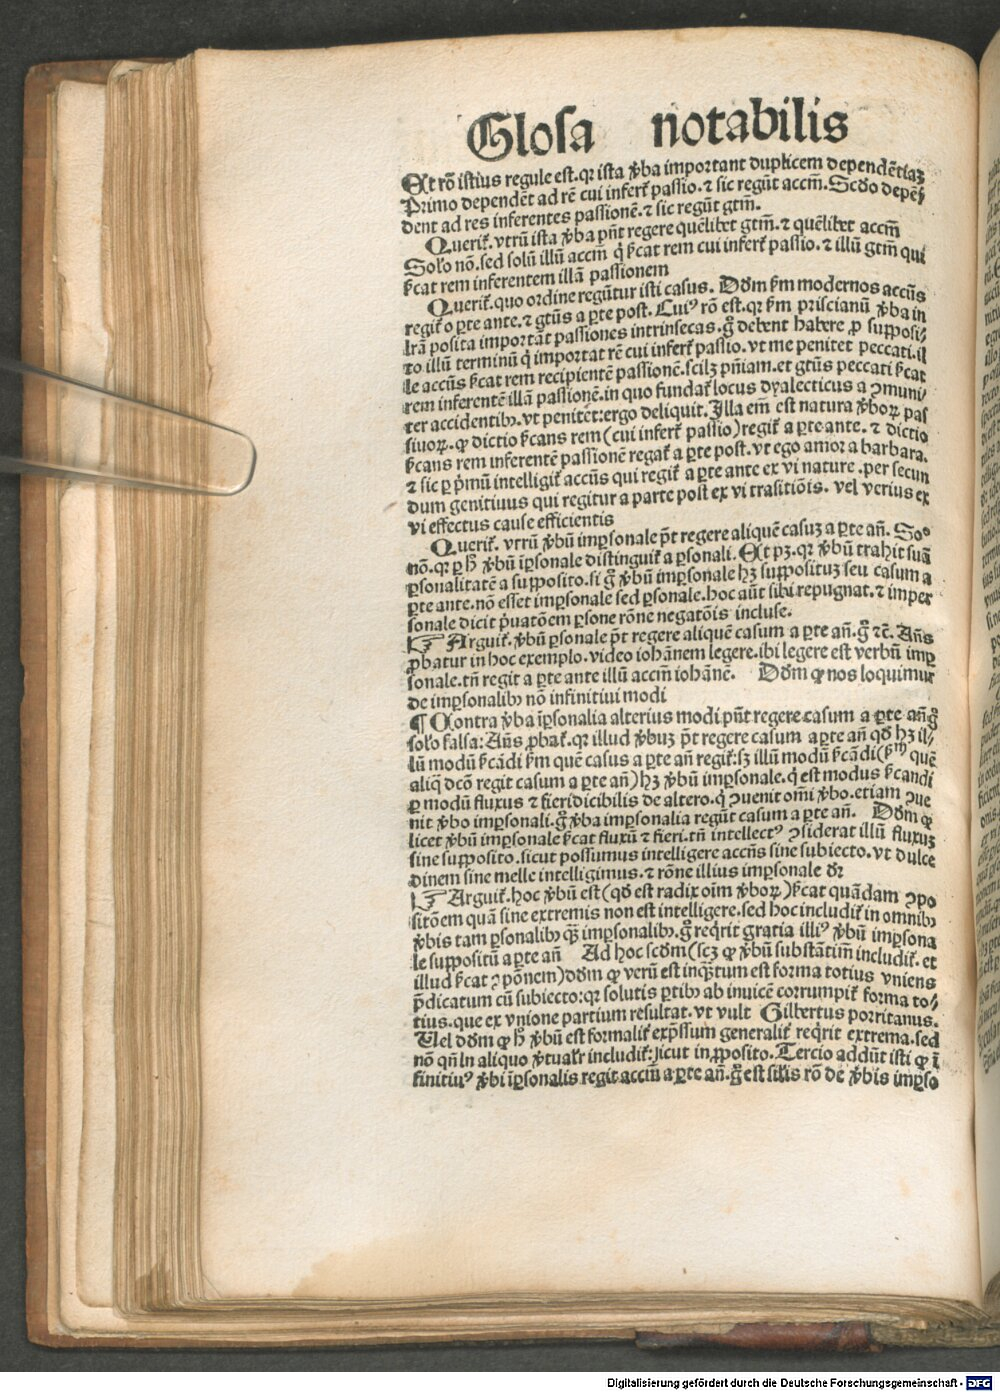 Glosa notabilis
Et rō istius regule est. qꝛ ista ꝟba important duplicem dependētiaꝫ
Primo dependēt ad rē cui inferť passio. ⁊ sic regūt accm̄. Scďo depē⸗
dent ad res inferentes passionē. ⁊ sic regūt gtm̄.
Querit̄. vtrū ista ꝟba pn̄t regere quēlibet gtm̄. ⁊ quēlibet accm̄
Solo nō. sed solū illū accm̄ q̇ ẜcat rem cui infert̄ passio. ⁊ illū gtm̄ qui
ẜcat rem inferentem illā passionem
Querit̄. quo ordine regūtur isti casus. Dďm ẜm modernos accūs
regit̄ o ꝑte ante. ⁊ gtūs a ꝑte post. Cuiꝰ rō est. qꝛ ẜm priscianū ꝟba in
lrā posita importāt passiones intrinsecas. gͦ debent habere ꝓ supposi⸗
to illū terminū q̇ importat rē cui infert̄ passio. vt me penitet peccati. il
le accūs ẜcat rem recipientē passionē. scilꝫ pn̄iam. et gtūs peccati ẜcat
rem inferentē illā passionē. in quo fundat̄ locus dyalecticus a ꝯmuni⸗
ter accidentibꝫ. vt penitet: ergo deliquit. Illa em̄ est natura ꝟboꝝ pas
siuoꝝ. ꝙ dictio ẜcans rem (cui infert̄ passio) regit̄ a ꝑte ante. ⁊ dictio
ẜcans rem inferentē passionē regat̄ a ꝑte post. vt ego amor a barbara.
⁊ sic ꝑ pͥmū intelligit̄ accūs qui regit̄ a ꝑte ante ex vi nature. per secun
dum genitiuus qui regitur a parte post ex vi trāsitiōis. vel verius ex
vi effectus cause efficientis
Querit̄. vtrū ꝟbū imꝑsonale pn̄t regere aliquē casuꝫ a ꝑte an̄. Soͦ
nō. qꝛ ꝑ hͦ ꝟbū īꝑsonale distinguit̄ a ꝑsonali. Et pꝫ. qꝛ ꝟbū trahit suā
ꝑsonalitatē a supposito. si gͦ ꝟbū imꝑsonale hꝫ suppositūꝫ seu casum a
ꝑte ante. nō esset imꝑsonale sed ꝑsonale. hoc aūt sibi repugnat. ⁊ imper
sonale dicit pͥuatōem ꝑsone rōne negatōis incluse.
☞ Arguit̄. ꝟbū ꝑsonale pn̄t regere aliquē casum a ꝑte an̄. gͦ ⁊c̄. An̄s
ꝓbatur in hoc exemplo. video iohānem legere. ibi legere est verbū imꝑ
sonale. tn̄ regit a ꝑte ante illū accm̄ iohānē. Dďm ꝙ nos loquimur
de imꝑsonalibꝫ nō infinitiui modi
¶ Contra ꝟba īꝑsonalia alterius modi pn̄t regere casum a ꝑte an̄ gͦ
solo falsa: An̄s ꝓbat̄. qꝛ illud ꝟbuꝫ pn̄t regere casum a ꝑte an̄ qď hꝫ il⸗
lū modū ẜcādi ẜm quē casus a ꝑte an̄ regit̄: sꝫ illū modū ẜcādi (ẜm quē
aliq̇ dcō regit casum a ꝑte an̄) hꝫ ꝟbū imꝑsonale. q̇ est modus ẜcandi
ꝑ modū fluxus ⁊ fieri dicibilis de altero. q̇ ꝯuenit om̄i ꝟbo. etiam ꝯue
nit ꝟbo imꝑsonali. gͦ ꝟba imꝑsonalia regūt casum a ꝑte an̄. Dďm ꝙ
licet ꝟbū imꝑsonale ẜcat fluxū ⁊ fieri. tn̄ intellectꝰ ꝯsiderat illū fluxuꝫ
sine supposito. sicut possumus intelligere accn̄s sine subiecto. vt dulce
dinem sine melle intelligimus. ⁊ rōne illius imꝑsonale ďr
☞ Arguit̄. hoc ꝟbū est (qď est radix oīm ꝟboꝝ) ẜcat quādam ꝯpo
sitōem quā sine extremis non est intelligere. sed hoc includit̄ in omnibꝫ
ꝟbis tam ꝑsonalibꝫ qꝫ̄ imꝑsonalibꝫ. gͦ reqͥrit gratia illiꝰ ꝟbū imꝑsona
le suppositū a ꝑte an̄ Ad hoc scďm (scꝫ ꝙ ꝟbū substātiu̅m includit̄. et
illud ẜcat ꝯpōnem) dďm ꝙ verū est inqꝫ̄tum est forma totius vniens
p̄dicatum cū subiecto: qꝛ solutis ꝑtibꝫ ab inuicē corrumpit̄ forma to⸗
tius. que ex vnione partium resultat. vt vult Gilbertus porritanus.
Uel dďm ꝙ hͦ ꝟbū est formalit̄ exp̄ssum generalit̄ reqͥrit extrema. sed
nō qn̄ in aliquo ꝟtualr̄ includit̄: sicut in ꝓposito. Tercio addūt isti ꝙ ī
finitiuꝰ ꝟbi īꝑsonalis regit accm̄ a ꝑte an̄. gͦ est silis rō de ꝟbis imꝑso
Digitalisierung gefördert durch die Deutsche Forschungsgemeinschaft - DFG